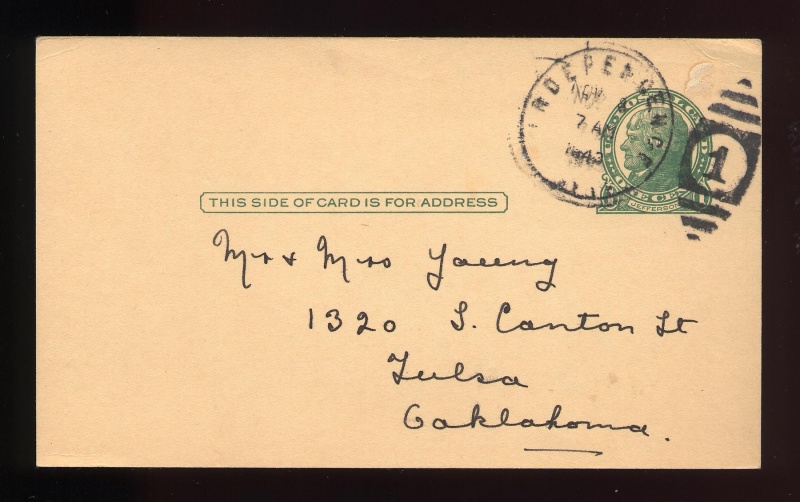 INDEPENDENCE
7 A
1943
1
JEFFERSON
THIS SIDE OF CARD IS FOR ADDRESS
Mr + Mrs Young
1320 S. Canton St
Tulsa
Oaklahoma.